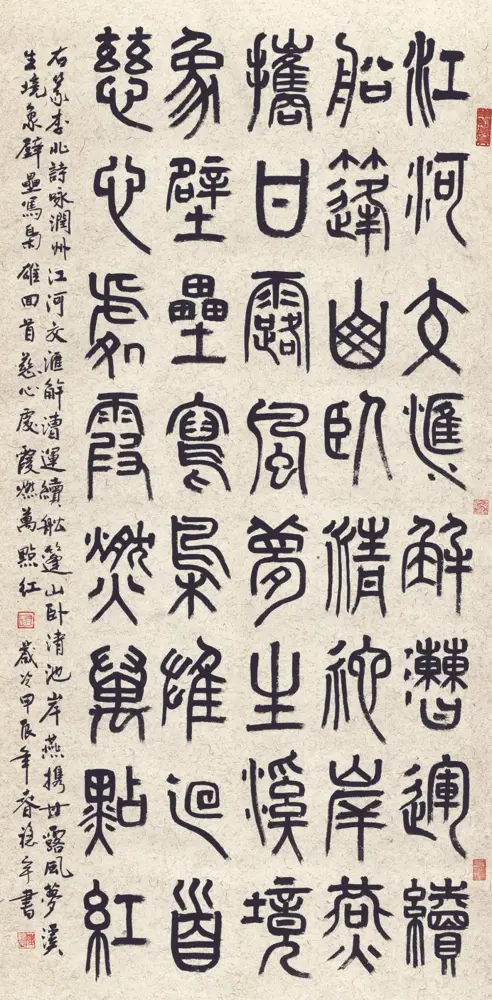 江河交匯解漕運續
船篷幽臥清池岸燕
攜甘露風夢生溪境
象壁壘寫梟雄迴首
慈心處霞燃萬點紅
右篆李北詩咏潤州江河交滙解漕運續舩篷山卧清池岸燕携甘露風夢溪
生境象壁壘寫梟雄回首慈心處霞燃萬點紅 歲次甲辰年春 書